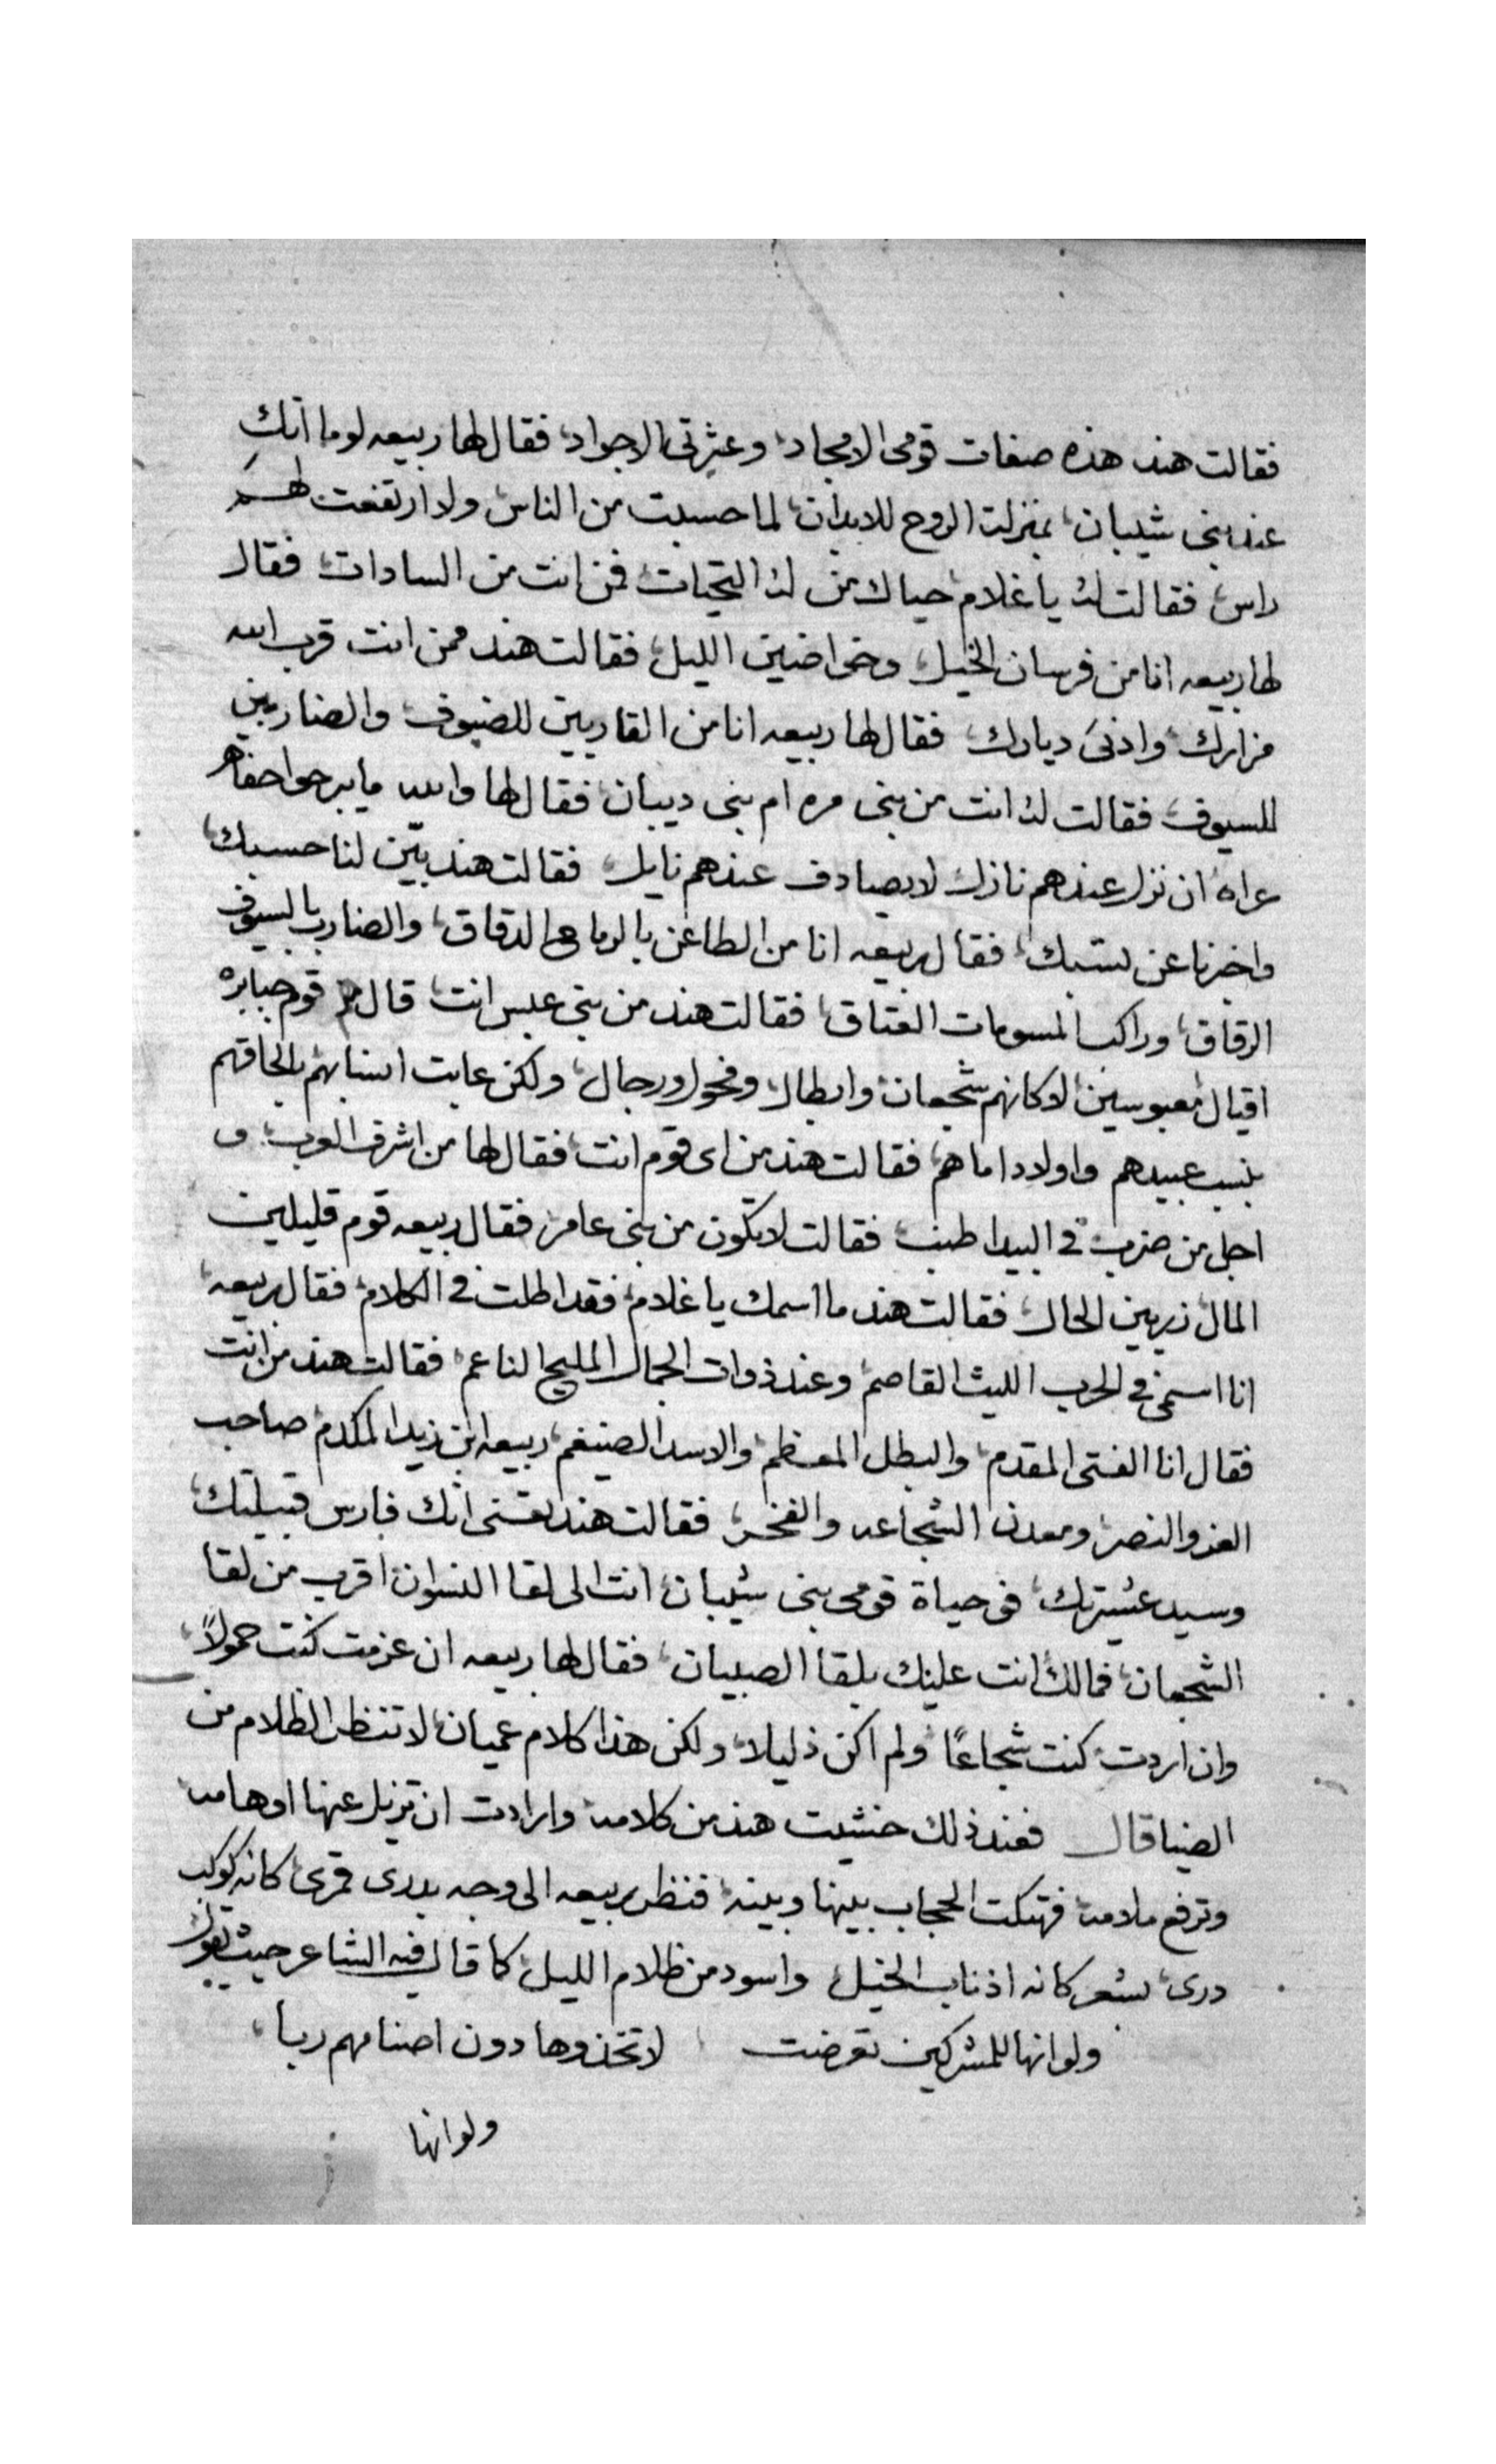 فقالت هند هذه صفات قومى الامجاد، وعثرتى الاجواد، فقال لها ربيعه لوما انك
عند بنى شيبان، بمنزلت الروح للابدان، لما حسبت من الناس، ولا ارتفعت لهم
راس، فقالت له يا غلام، حياك من له التحيات، فمن انت من السادات، فقال
لها ربيعه انا من فرسان الخيل، وخواضين الليل، فقالت هند ممن انت قرب الله
مزارك، وادنى ديارك، فقال لها ربيعه انا من القاريين للضيوف، والضاربين
للسيوف، فقالت له انت من بنى مره ام بنى ديبان، فقال لها والله ما يبرحوا حفاه
عراه، ان نزل عندهم نازل، لا يصادف عندهم نايل، فقالت هند بيّن لنا حسبك،
واخبرنا عن نسبك، فقال ربيعه انا من الطاعن بالرماح الدقاق، والضارب بالسيوف
الرقاق، وراكب المسومات العتاق، فقالت هند من بنى عبس انت، قال قوم جبابره
اقيال معبوسين، الا كانهم شجعان وابطال، وفحول ورجال، ولكن عابت انسابهم بالحاقهم
بنسب عبيدهم واولاد اماهم، فقالت هند من اى قوم انت، فقال لها من اشرف العرب، و
اجل من ضرب فى البيدا طنب، فقالت لا تكون من بنى عامر، فقال ربيعه قوم قليلين
المال، زريين الحال، فقالت هند ما اسمك يا غلام، فقد اطلت فى الكلام، فقال ربيعه،
انا اسمى فى الحرب الليث القاصم، وعند ذوات الجمال المليح الناعم، فقالت هند من انت
فقال انا الفتى المقدم، والبطل المعظم، والاسد الضيغم، ربيعه ابن زيد المكدم، صاحب
العز والنصر، ومعدن الشجاعه والفخر، فقالت هند انك فارس قبيلتك،
وسيد عشيرتك، فو حياة قومى بنى شيبان، انت الى لقا النسوان، اقرب من لقا
الشجعان، فمالك انت عليك بلقا الصبيان، فقال لها ربيعه ان عزمت كنت حمولاً،
وان اردت كنت شجاعًا، ولم اكن ذليلا، ولكن هذا كلام عميان، لا تنظر الظلام من
الضيا قال فعند ذلك خشيت هند من كلامه، وارادت ان تزيل عنها اوهامه
وترفع ملامه، فهتكت الحجاب بينها وبينه، فنظر ربيعه الى وجه بدرى قمرى، كانه كوكب
درى، بشعر كانه اذناب الخيل، واسود من ظلام الليل، كما قال فيه الشاعر حيث يقول
ولو انها للمشركين تعرضت لاتخذوها دون اصنامهم ربا،
ولو انها